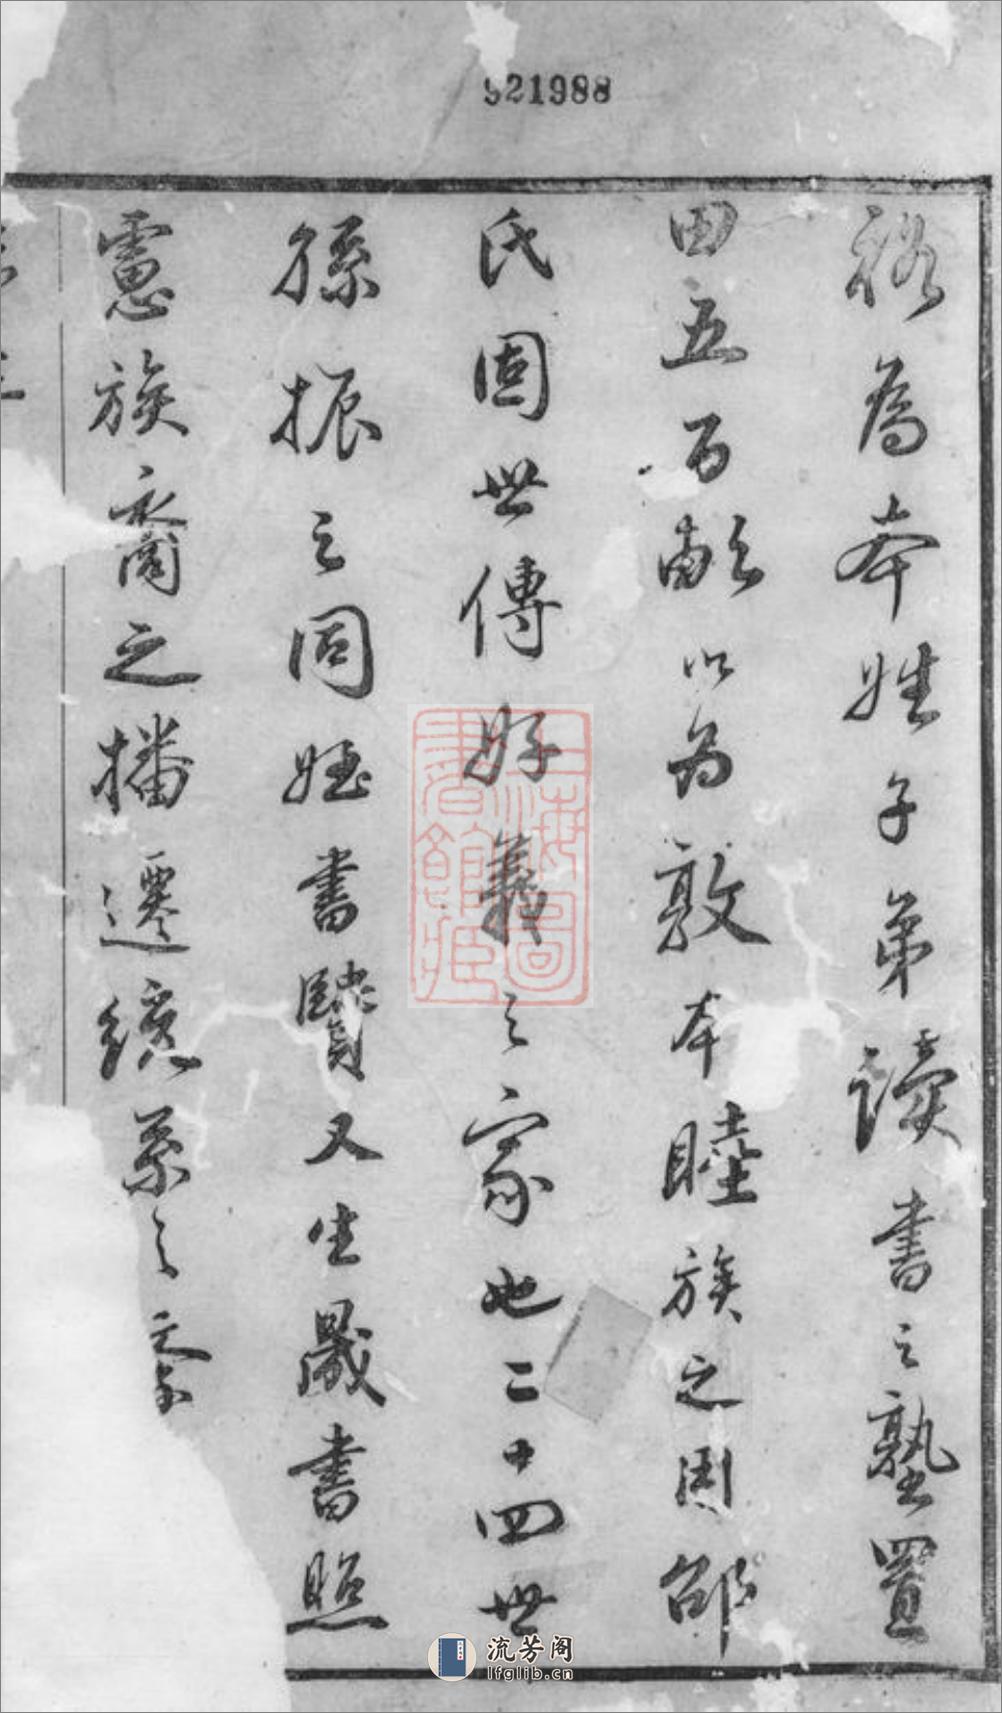 921988
裕為本姓子弟讀書之塾置
田五百畝以為敦本睦族之用邵
氏固世傳好義之家也二十四世
孫振之同姪書賢又生晟書照
慮族裔之播遷統系之紊
上海圖書館藏
流芳阁
lfglib.cn